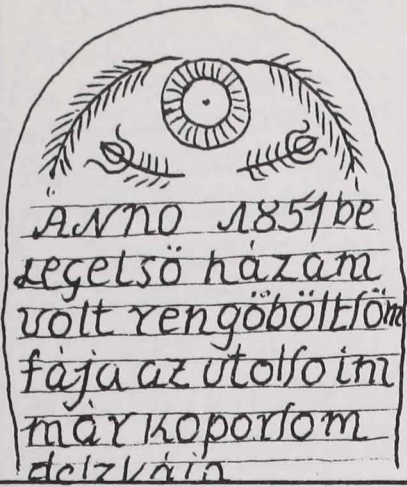 ANNO 1851be
Legelsö házam
volt rengöböltſöm
fája az utolſo im
már koporſom